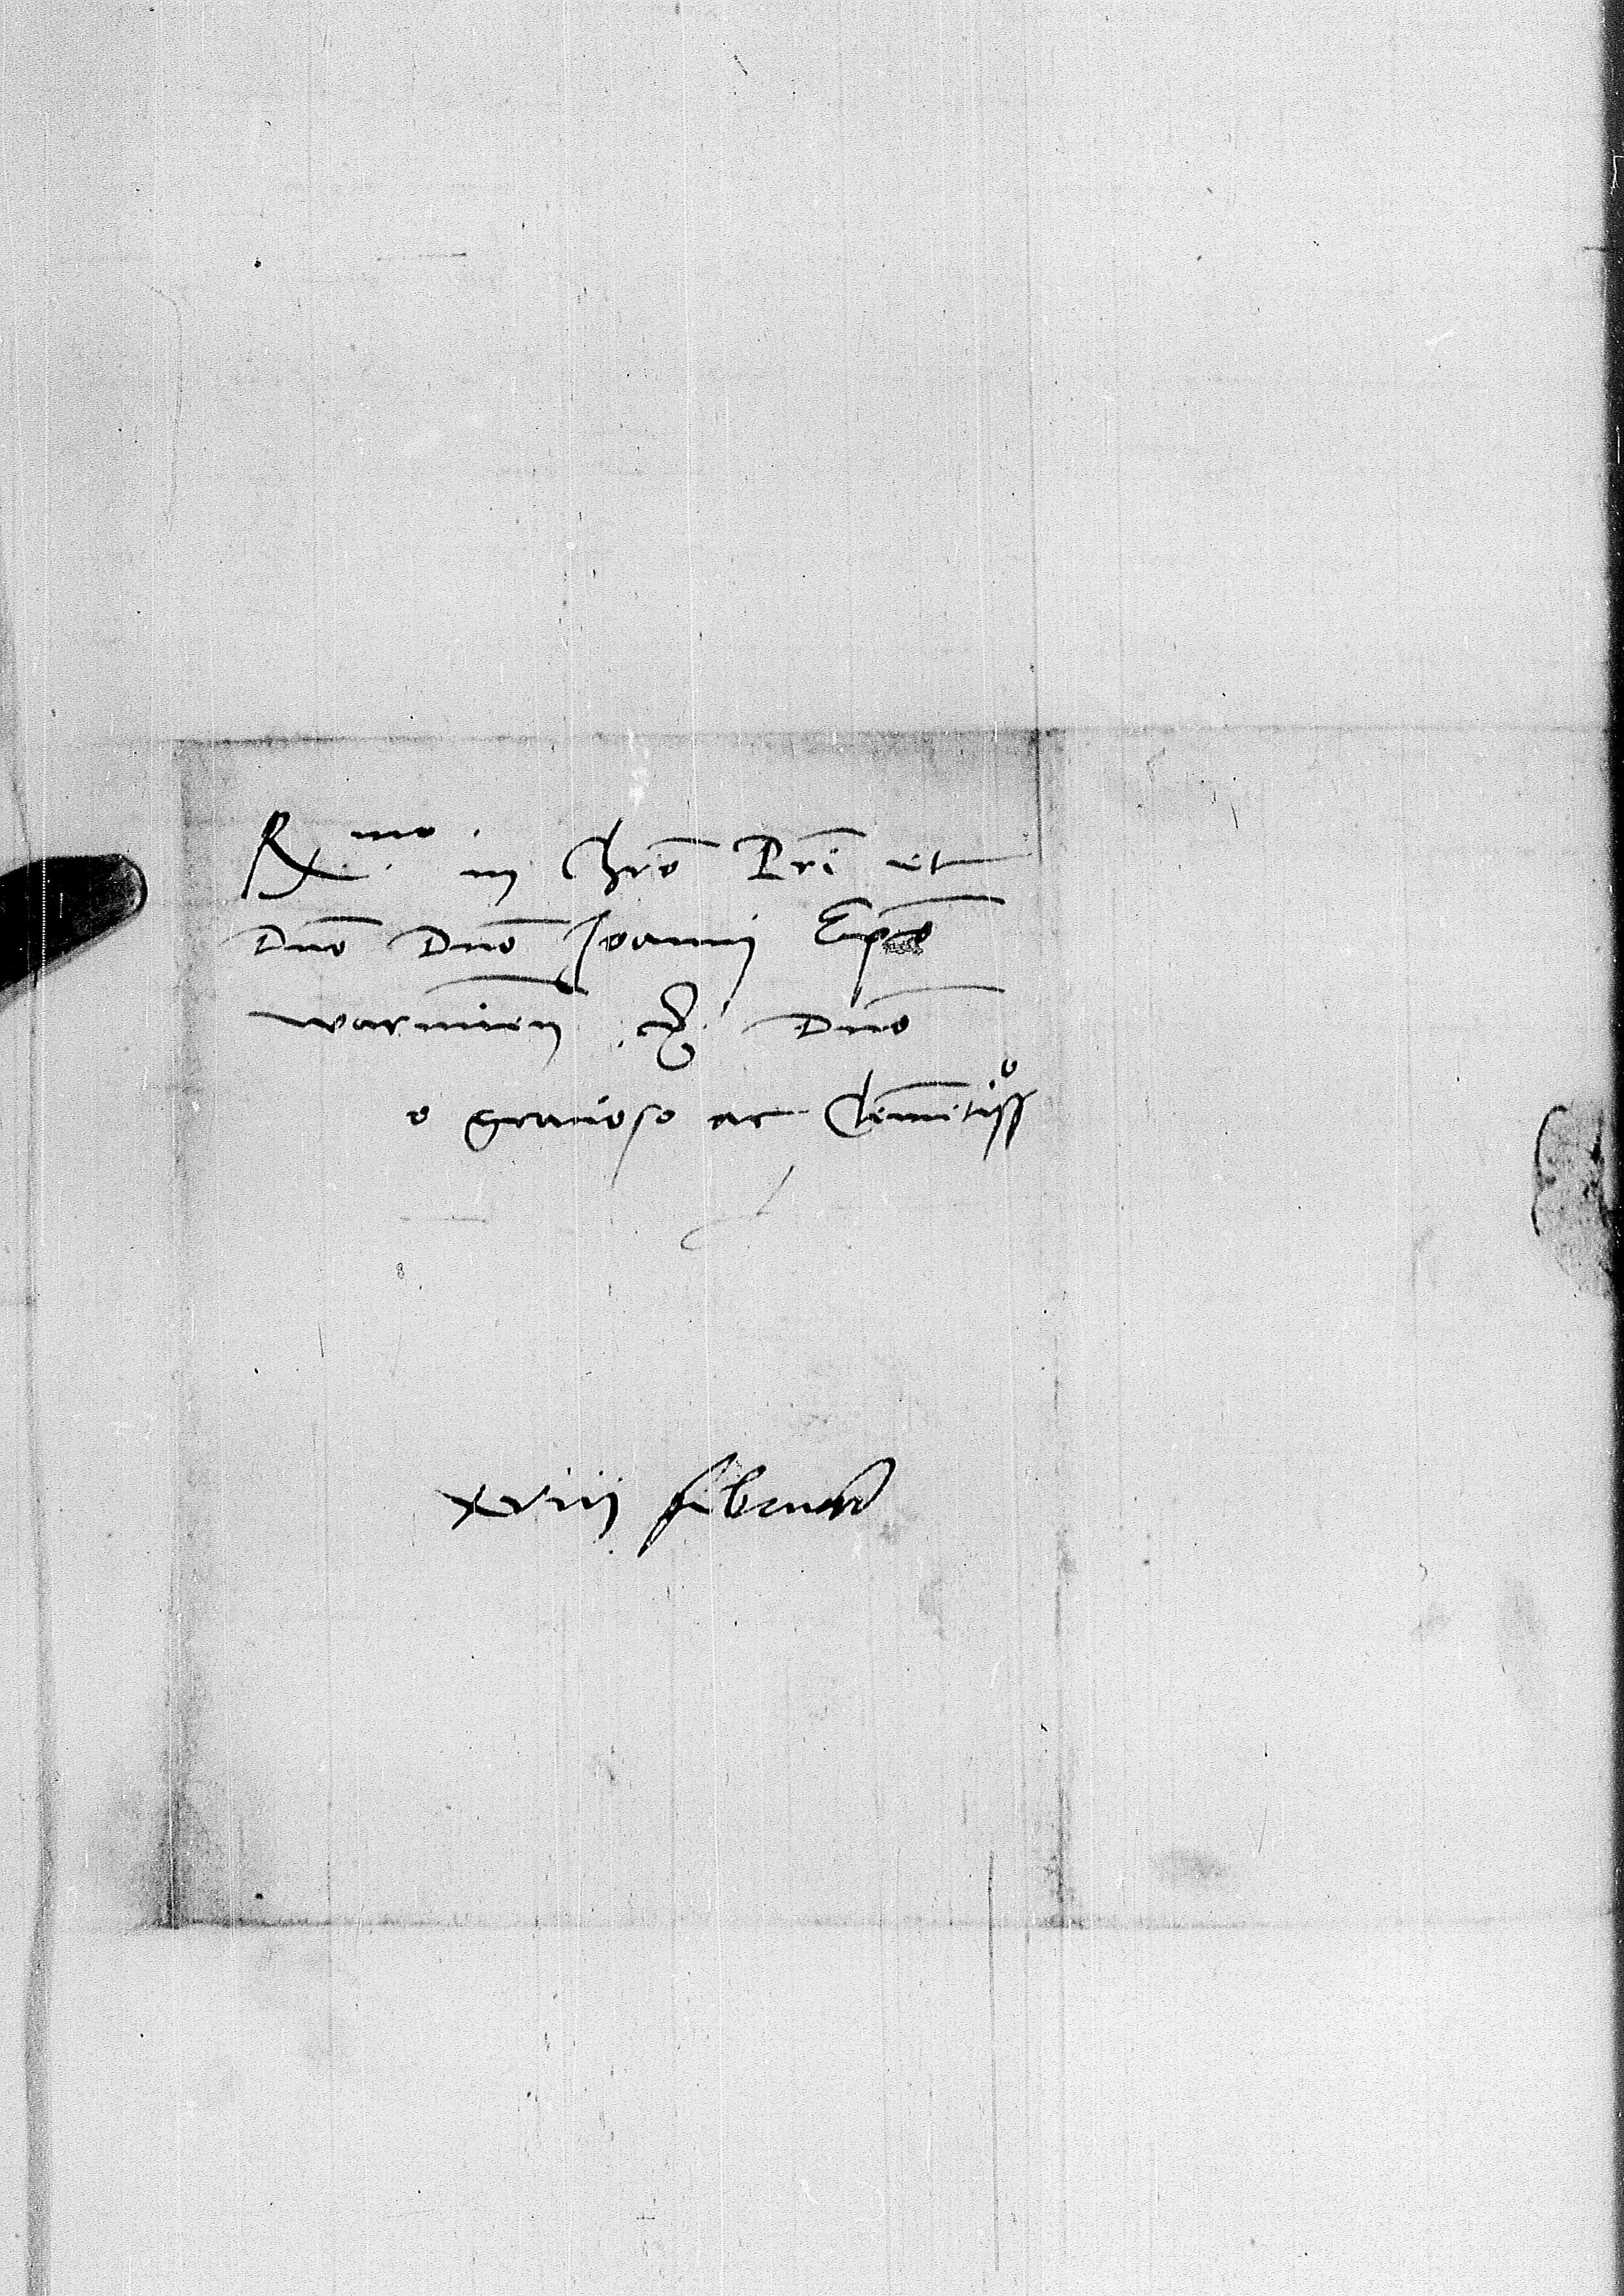 R.mo in Chro Pri et
Dno Dno Joannj Epo
warmien etc. Dno
o gratioso ac Clementisso
xviij februar